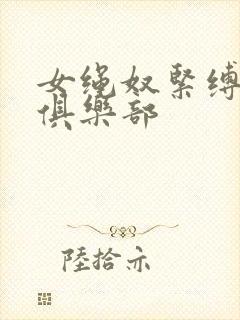 女绳奴緊缚
俱樂部
陸拾亦